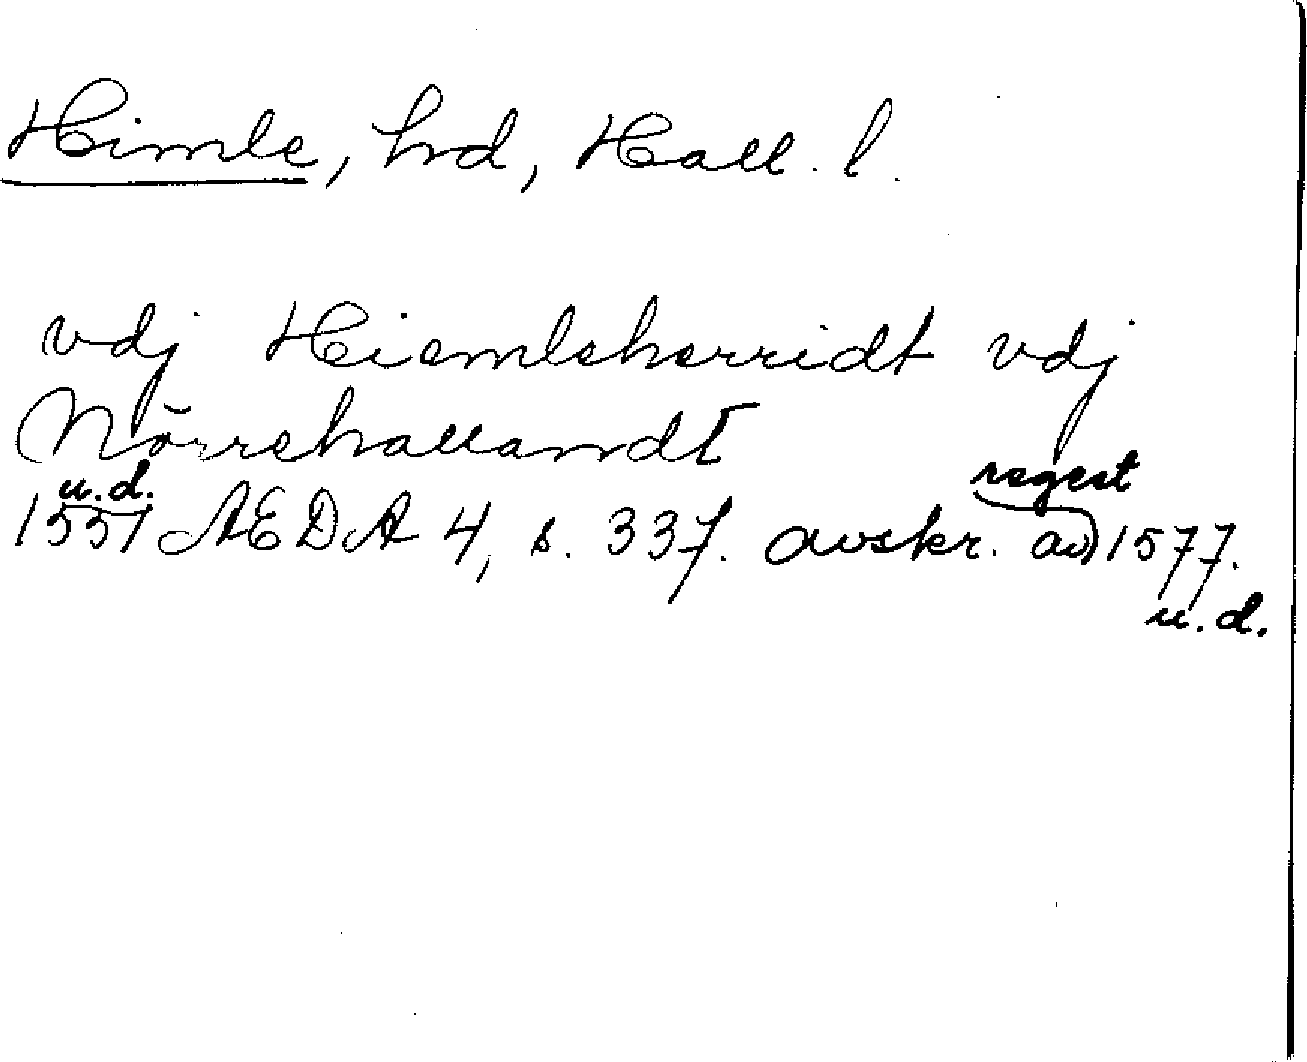 Himle, hrd, Hall. l.
vdj Hiemleherridt vdj
Nörrehallandt
u.d. regest
1551 ÆDA 4, s. 337. avskr. av 1577.
u.d.